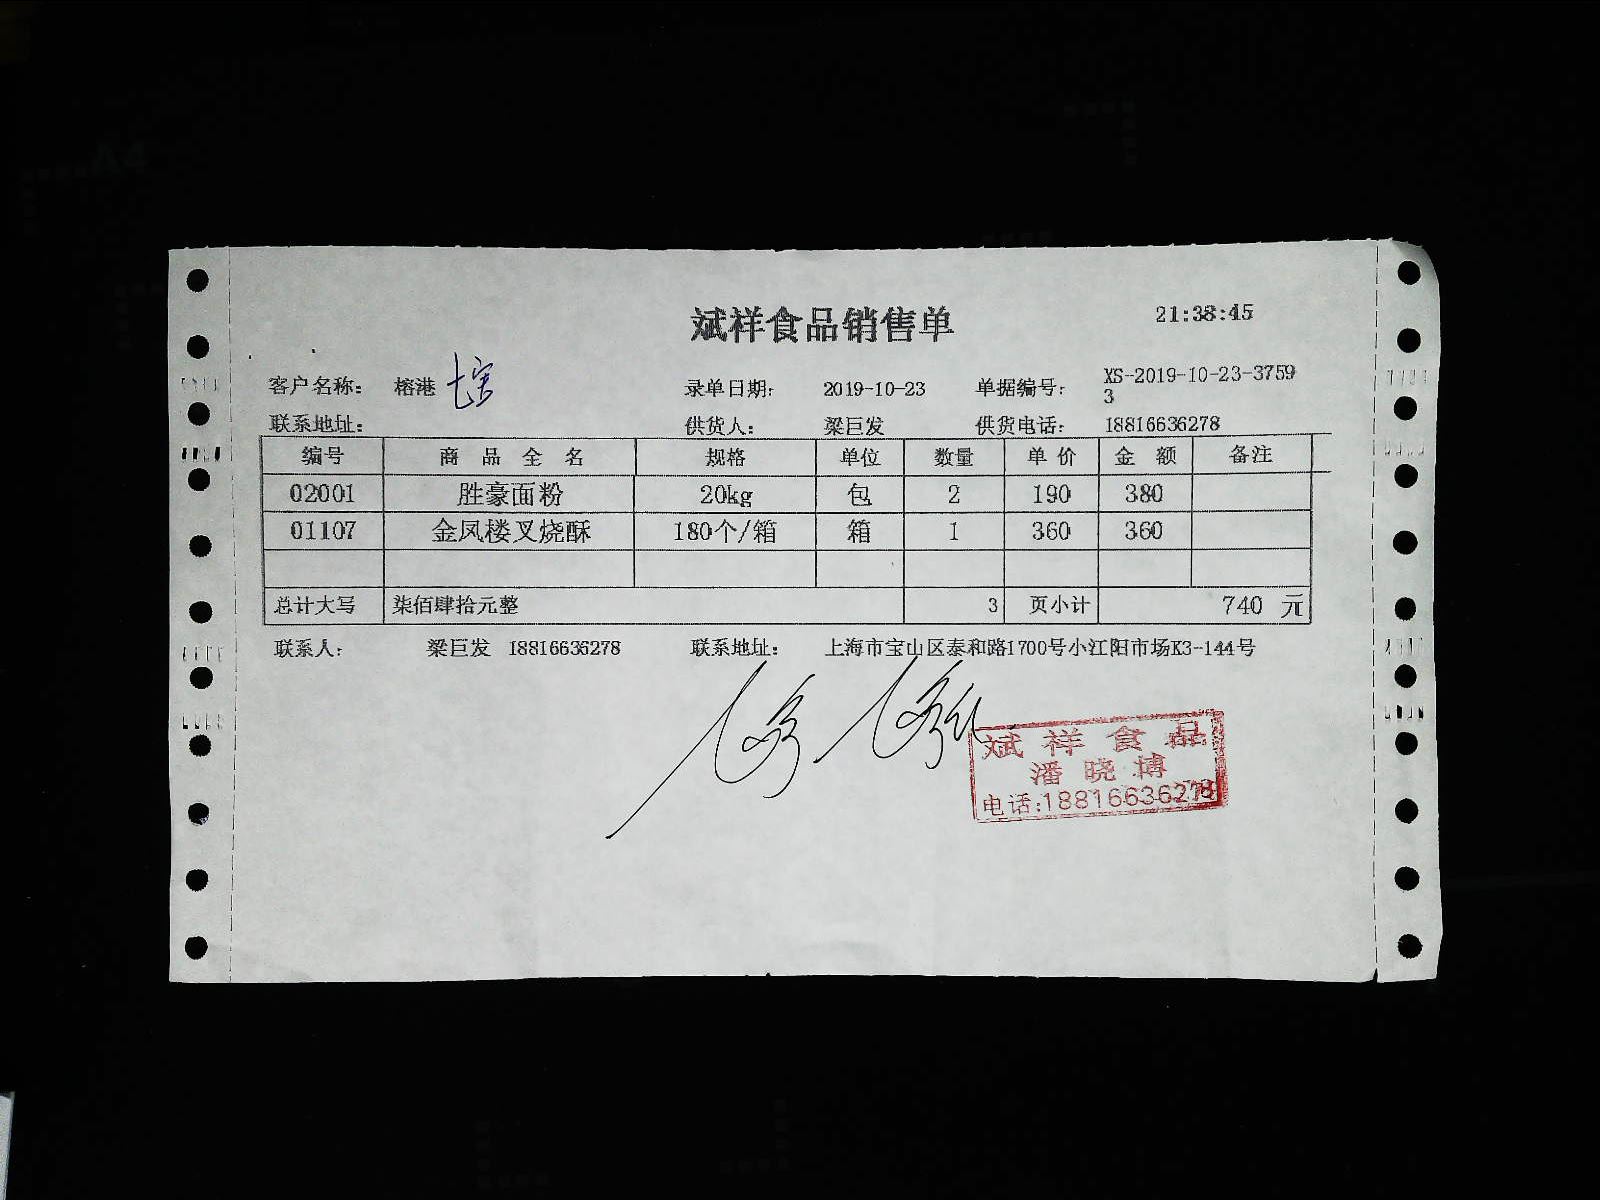 斌祥食品销售单 21:38:45
客户名称: 榕港 七宝 录单日期: 2019-10-23 单据编号: XS-2019-10-23-3759
3
联系地址: 供货人: 梁巨发 供货电话: 18816636278
编号 商品全名 规格 单位 数量 单价 金额 备注
02001 胜豪面粉 20kg 包 2 190 380
01107 金凤楼叉烧酥 180个/箱 箱 1 360 360
总计大写 柒佰肆拾元整 3 页小计 740 元
联系人: 梁巨发 18816636278 联系地址: 上海市宝山区泰和路1700号小江阳市场K3-144号
斌祥食品
潘晓博
电话:18816636278